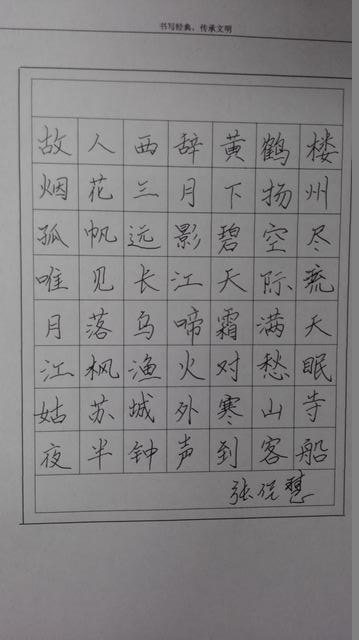 书写经典，传承文明
故人西辞黄鹤楼
烟花三月下扬州
孤帆远影碧空尽
唯见长江天际流
月落乌啼霜满天
江枫渔火对愁眠
姑苏城外寒山寺
夜半钟声到客船
张